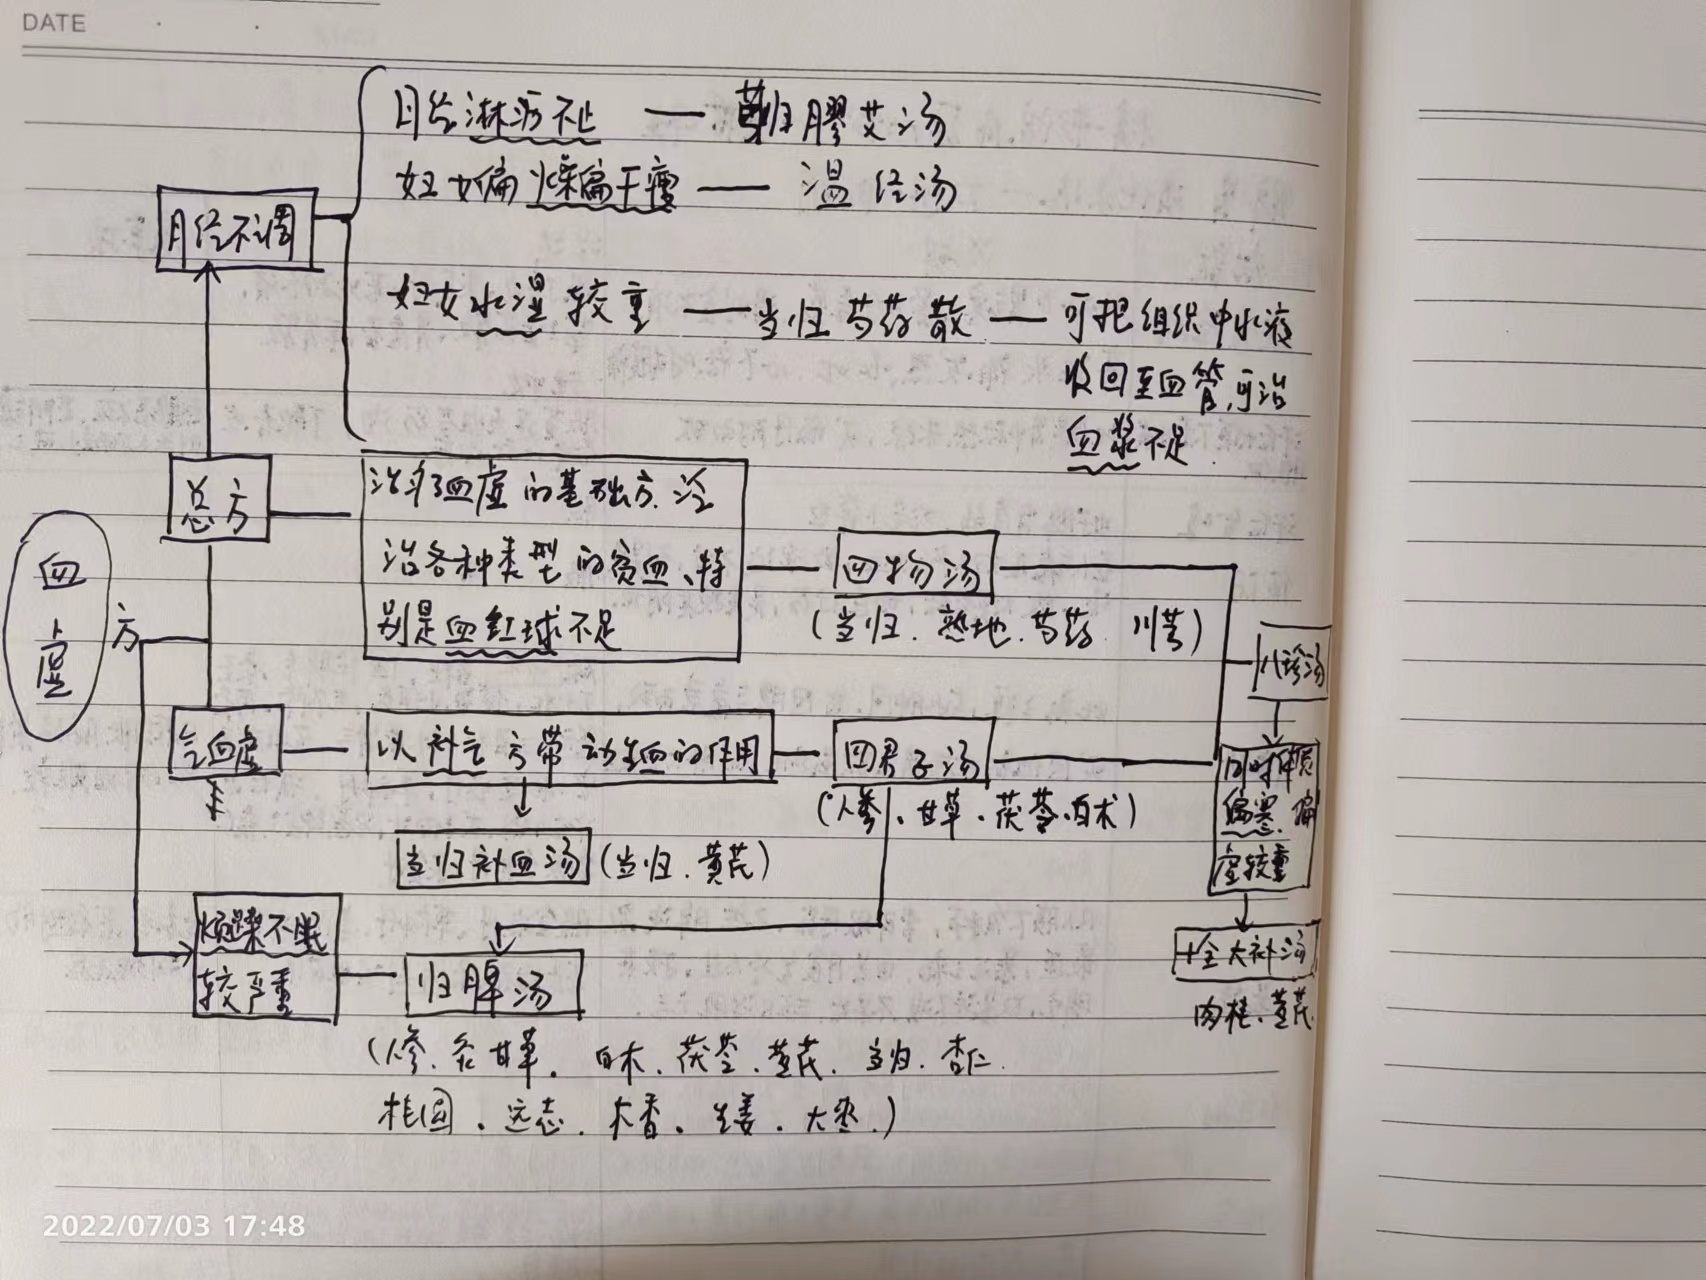 DATE
月经淋沥不止 — 芎归膠艾汤
妇女偏燥偏干瘦 — 温经汤
月经不调
妇女水湿较重 — 当归芍药散 — 可把组织中水液
收回至血管,可治
血浆不足.
总方
治疗血虚的基础方.泛
治各种类型的贫血、特
别是血红球不足
四物汤
(当归.熟地.芍药.川芎)
血虚
方
八珍汤
气血虚
以补气方带动生血的作用
四君子汤
(人参.甘草.茯苓.白术)
同时体质
偏寒.偏
虚较重
当归补血汤 (当归.黄芪)
烦躁不眠
较严重
归脾汤
十全大补汤
肉桂、黄芪
(人参.炙甘草.白术.茯苓.黄芪.当归.杏仁.
桂圆.远志.木香.生姜.大枣.)
2022/07/03 17:48